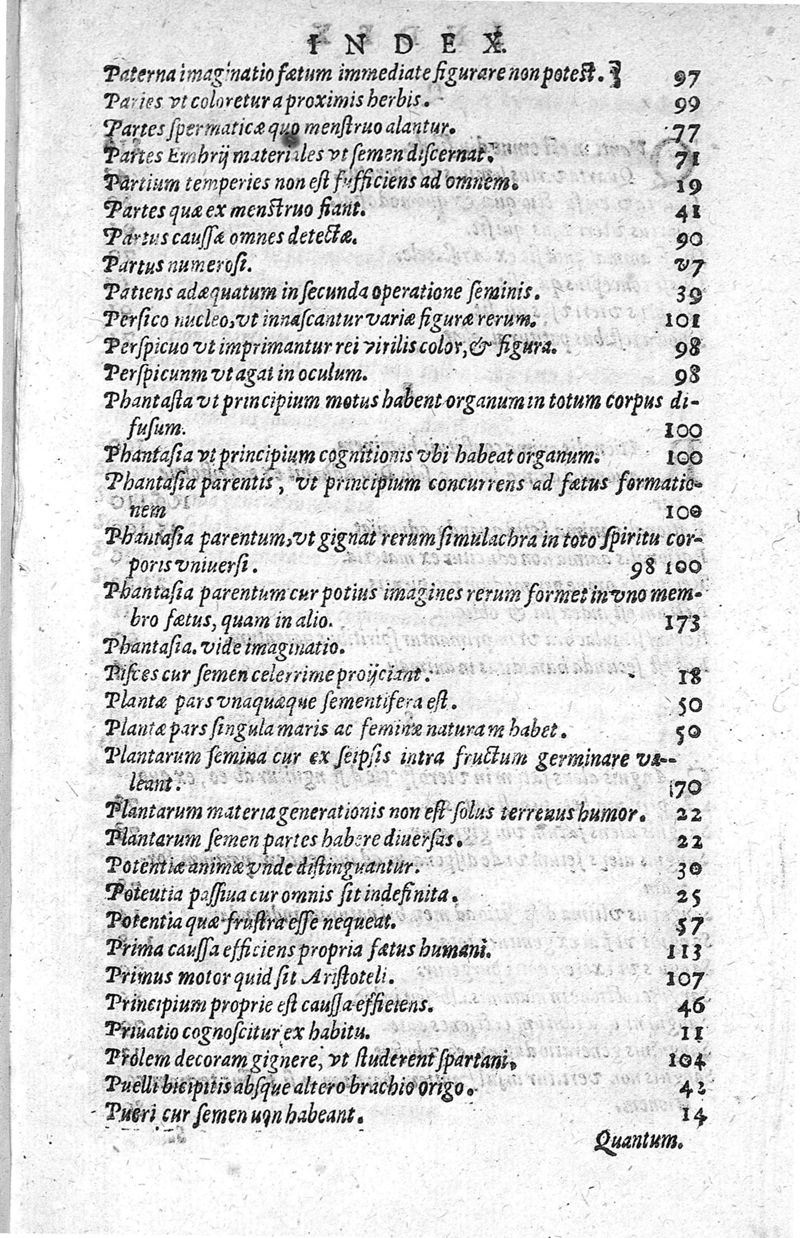 INDEX.
Paterna imaginatio fætum immediate figurare non potest. 97
Paries vt coloretur a proximis herbis. 99
Partes spermaticæ quo menstruo alantur. 77
Partes Embrij materiales vt semen discernat. 71
Partium temperies non est sufficiens ad omnem. 19
Partes quæ ex menstruo fiant. 41
Partus caussæ omnes detectæ. 90
Partus numerosi. v7
Patiens adæquatum in secunda operatione seminis. 39
Persico nucleo, vt innascantur variæ figuræ rerum. 101
Perspicuo vt imprimantur rei virilis color, & figura. 98
Perspicunm vt agat in oculum. 98
Phantasta vt principium motus habent organum in totum corpus di-
fusum. 100
Phantasia vt principium cognitionis vbi habeat organum. 100
Phantasia parentis, vt principium concurrens ad fætus formatio-
nem 100
Phantasia parentum, vt gignat rerum simulachra in toto spiritu cor-
poris vniuersi. 98 100
Phantasia parentum cur potius imagines rerum formet in vno mem-
bro fætus, quam in alio. 173
Phantasia. vide imaginatio.
Pisces cur semen celerrime proijciant. 18
Plantæ pars vnaquæque sementifera est. 50
Plantæ pars singula maris ac feminæ naturam habet. 50
Plantarum semina cur ex seipsis intra fructum germinare va-
leant. 170
Plantarum materia generationis non est solus terrenus humor. 22
Plantarum semen partes habere diuersas. 22
Potentiæ animæ vnde distinguantur. 30
Poteutia passiua cur omnis sit indefinita. 25
Potentia quæ frustra esse nequeat. 57
Prima caussa efficiens propria fætus humani. 113
Primus motor quid sit Aristoteli. 107
Principium proprie est caussa efficiens. 46
Priuatio cognoscitur ex habitu. 11
Prolem decoram gignere, vt studerent spartani, 104
Puelli bicipitis absque altero brachio origo. 42
Pueri cur semen uon habeant. 14
Quantum.